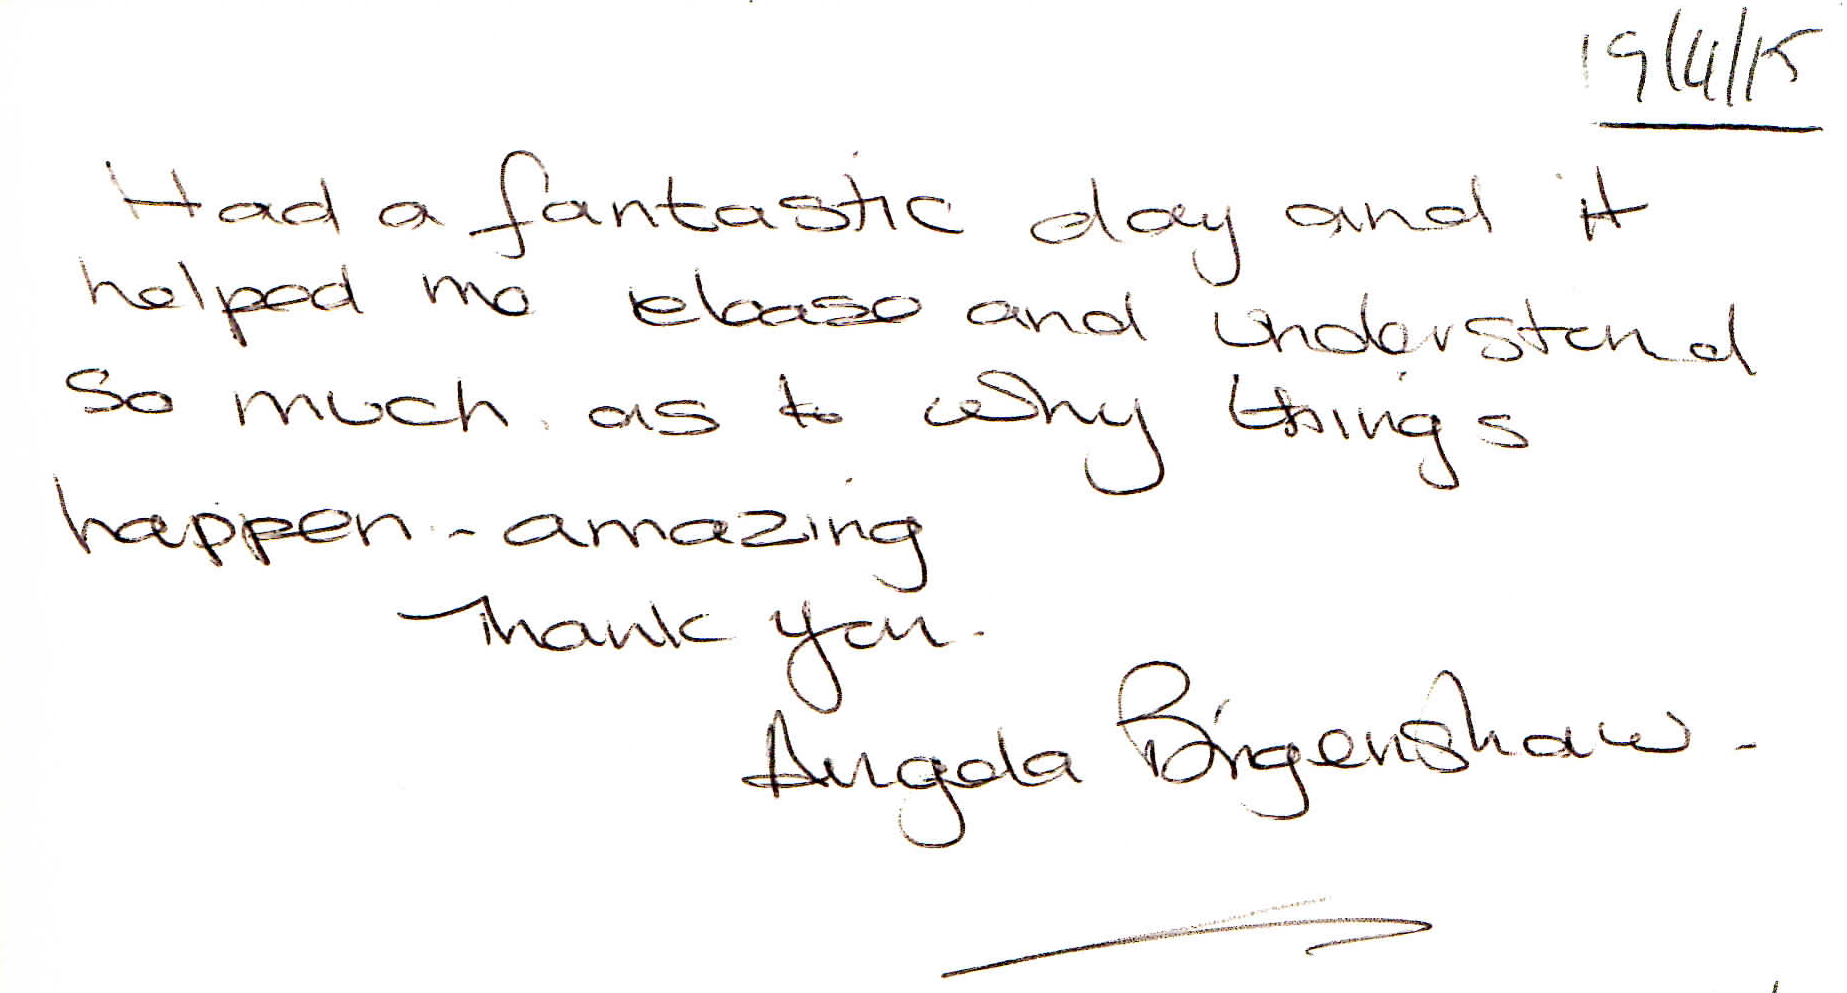 19/4/15
Had a fantastic day and it
helped me and understand
so much as to why things
happen - amazing
Thank you.
Angela Birgenshaw.